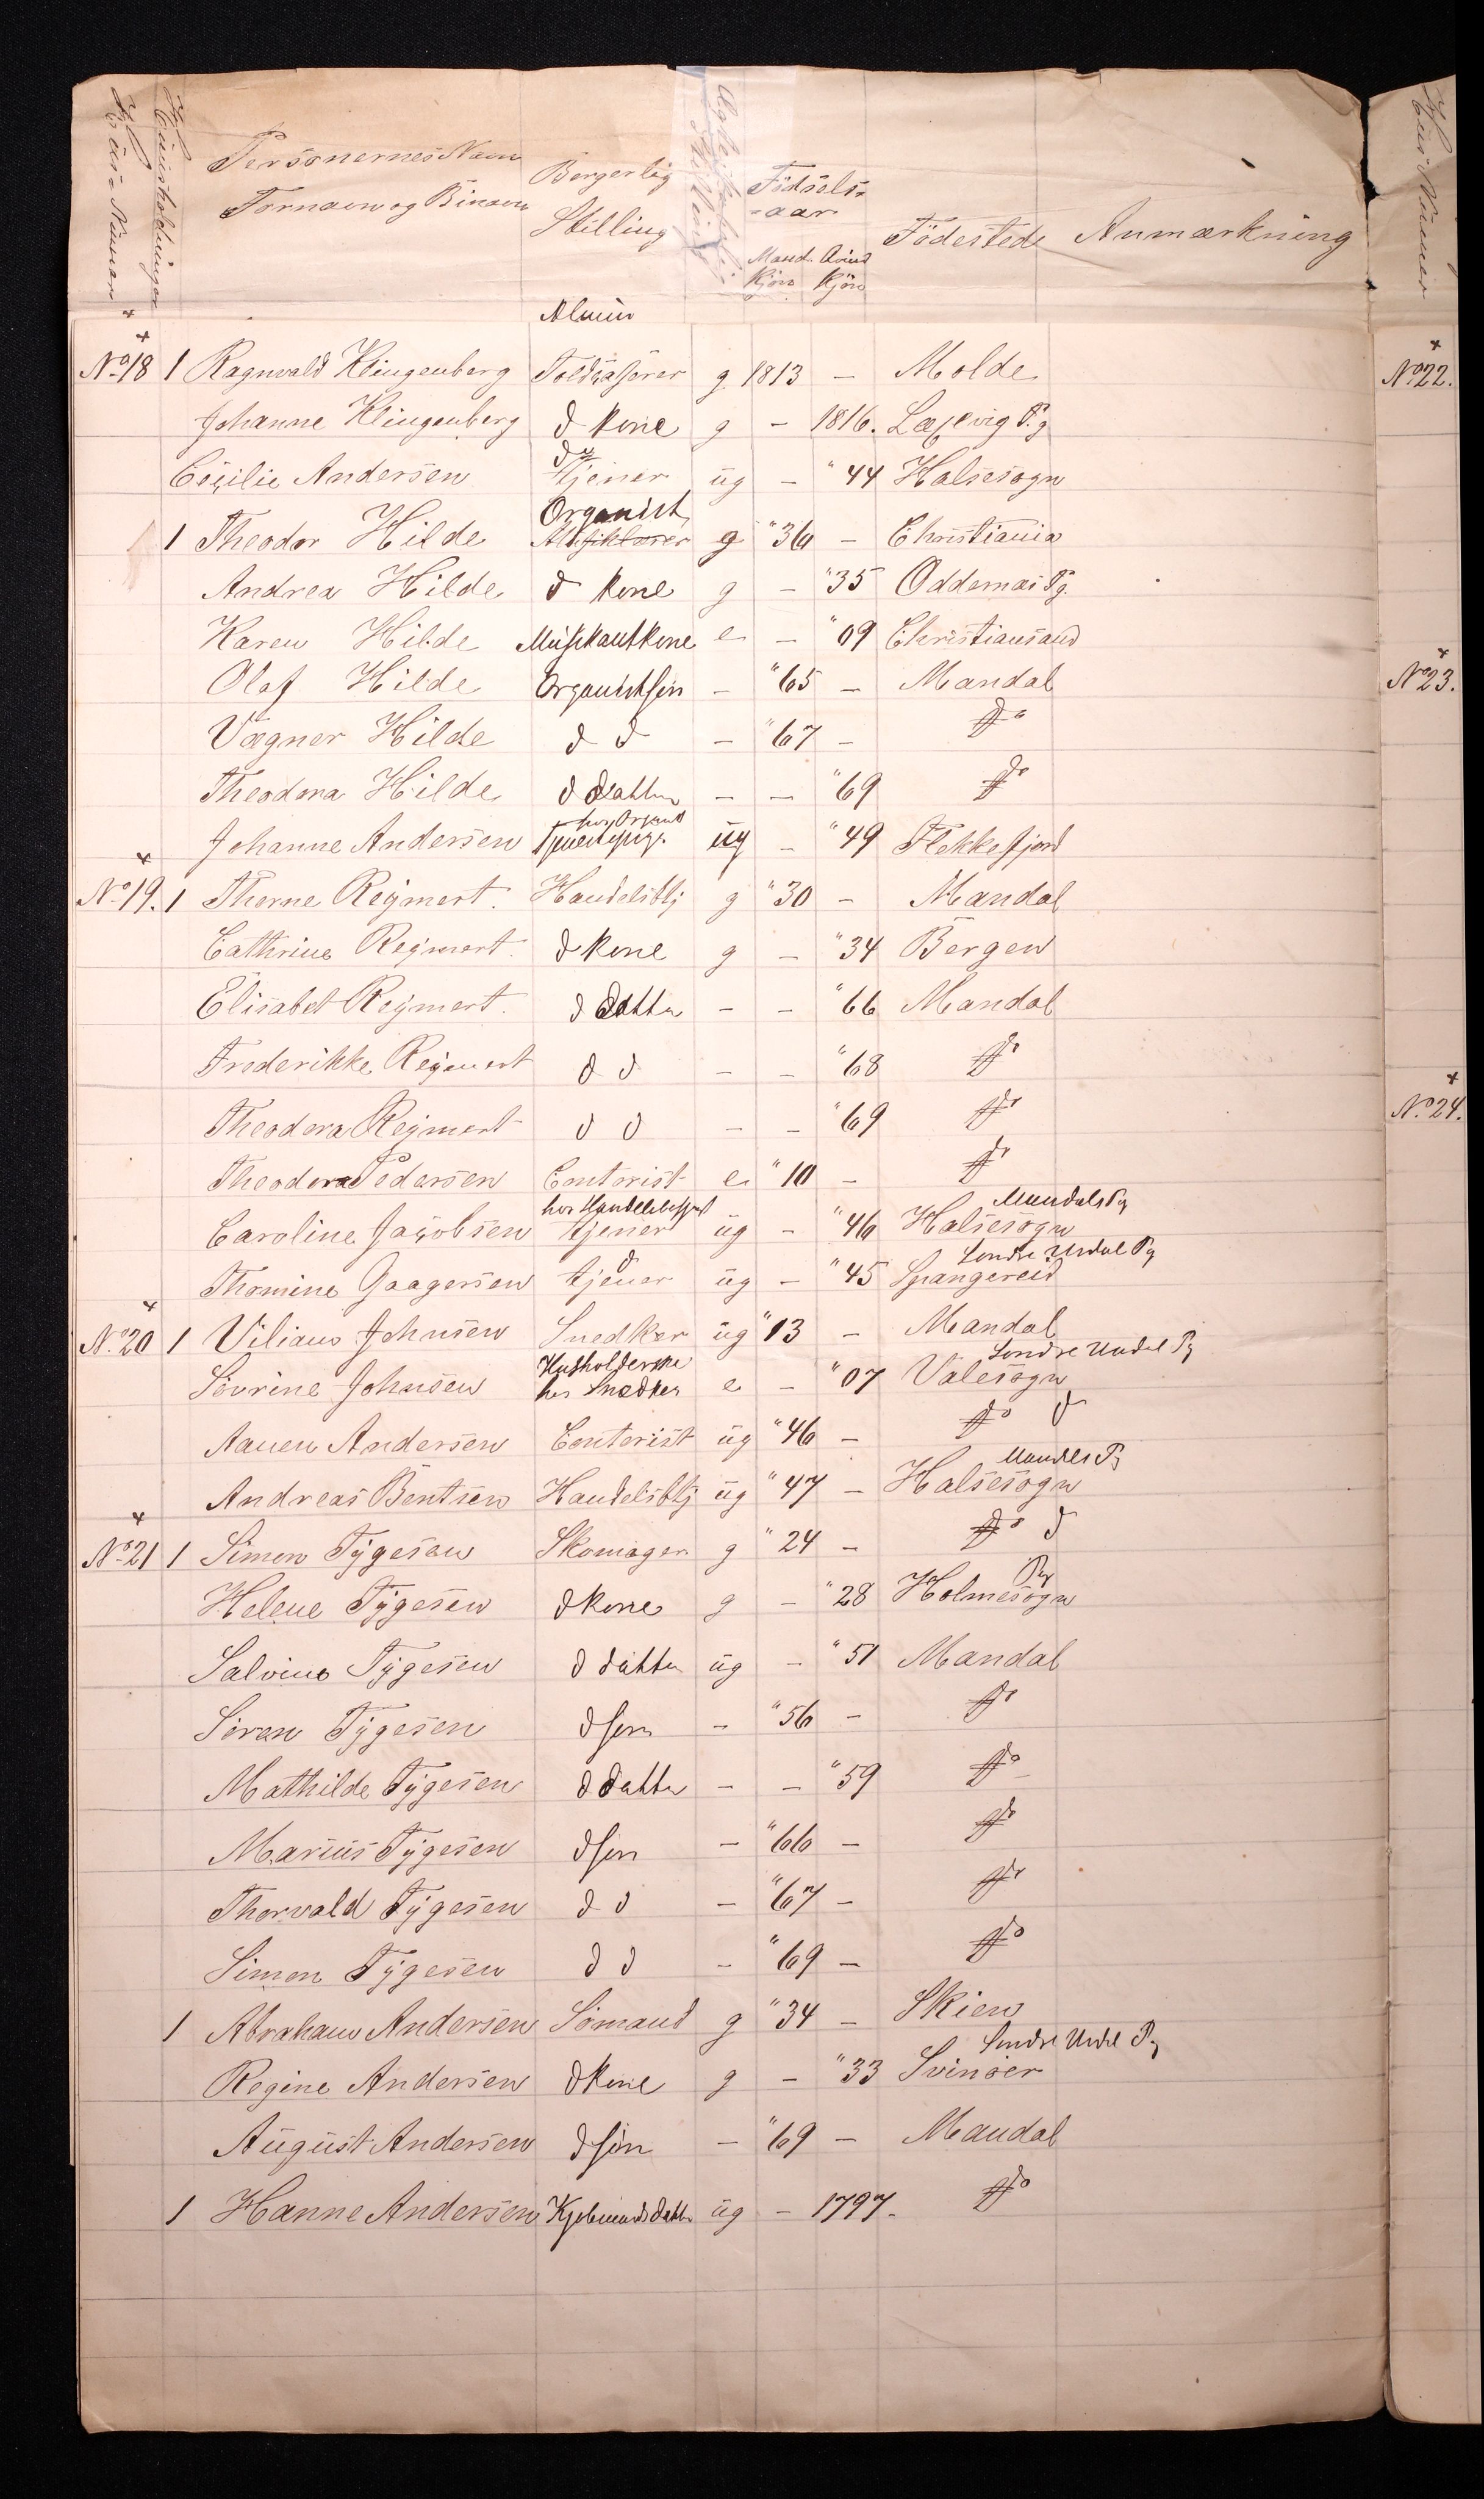 Huus-Numer
Huusholdninger
Personernes Navn
Fornavn og Binavn
Borgerlig
Stilling
Födsels-
-aar
Mand. Qvind
Kjön Kjön
Födested
Anmærkning
Huus Numer
Almin
No 18 1 Ragnvald Klingenberg Toldkaserer g 1813 - Molde
Johanne Klingenberg d kone g - 1816. Laxevig Pg
Cecilie Andersen do tjener ug - "44 Halsesogn
1 Theodor Hilde Organist g "36 - Christiania
Andrea Hilde d kone g - "35 Oddernæs Pg.
Karen Hilde Musikantkone e - "09 Christiansand
Olaf Hilde Organistsön - "65 - Mandal
Vagner Hilde d d - "67 - do
Theodora Hilde d datter - - "69 do
Johanne Andersen hos Organist Tjenestepige ug - "49 Flekkefjord
No 19. 1 Therne Reymert. Handelsbtj g "30 - Mandal
Cathrine Reymert. d kone g - "34 Bergen
Elisabet Reymert. d datter - - "66 Mandal
Frederikke Reymert d d - - "68 do
Theodora Reymert d d - - "69 do
Theodora Pedersen Contorist e "10 - do
Caroline Jacobsen hos Handelsbestyrer tjener ug - "46 Halsesogn Mandals Pg
Thomine Gaagersen d tjener ug - "45 Spangereid Söndre Undal Pg
No 20 1 Viliam Johnsen Snedker ug "13 - Mandal
Sovrine Johnsen Husholderske hos Snedker e - "07 Valesogn Söndre Undal Pg
Aanen Andersen Contorist ug "46 - do d
Andreas Bentsen Handelsbtj ug "47 - Halsesogn Mandals Pg
No 21 1 Simon Tygesen Skomager g "24 - do d
Helene Tygesen d kone g - "28 Holmesogn Pg
Salvine Tygesen d datter ug - "51 Mandal
Sören Tygesen d sön - "56 - do
Mathilde Tygesen d datter - - "59 do
Marius Tygesen d sön - "66 - do
Thorvald Tygesen d d - "67 - do
Simon Tygesen d d - "69 - do
1 Abraham Andersen Sömand g "34 - Skien
Regine Andersen d kone g - "33 Svinöer Söndre Undal Pg
August Andersen d sön - "69 - Mandal
1 Hanne Andersen Kjøbmandsdatter ug - 1797. do
No 22.
No 23.
No 24.